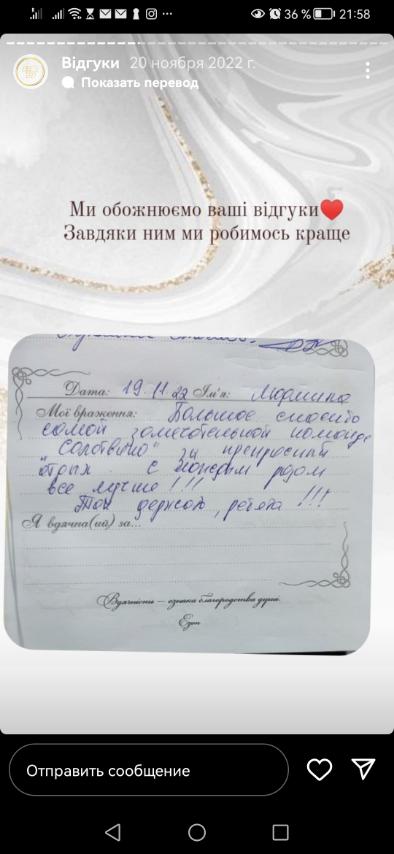 36 % 21:58
Відгуки 20 ноября 2022 г.
Показать перевод
Ми обожнюємо ваші відгуки❤️
Завдяки ним ми робимось краще
Дата: 19.11.22 Ім'я: Людмила
Мої враження: Большое спасибо
самой замечательной команде
за прекрасный
отдых. С каждым разом
все лучше!!!
Так держать, ребята!!!
Я вдячна(ий) за...
Вдячність — ознака благородства душі.
Езоп
Отправить сообщение